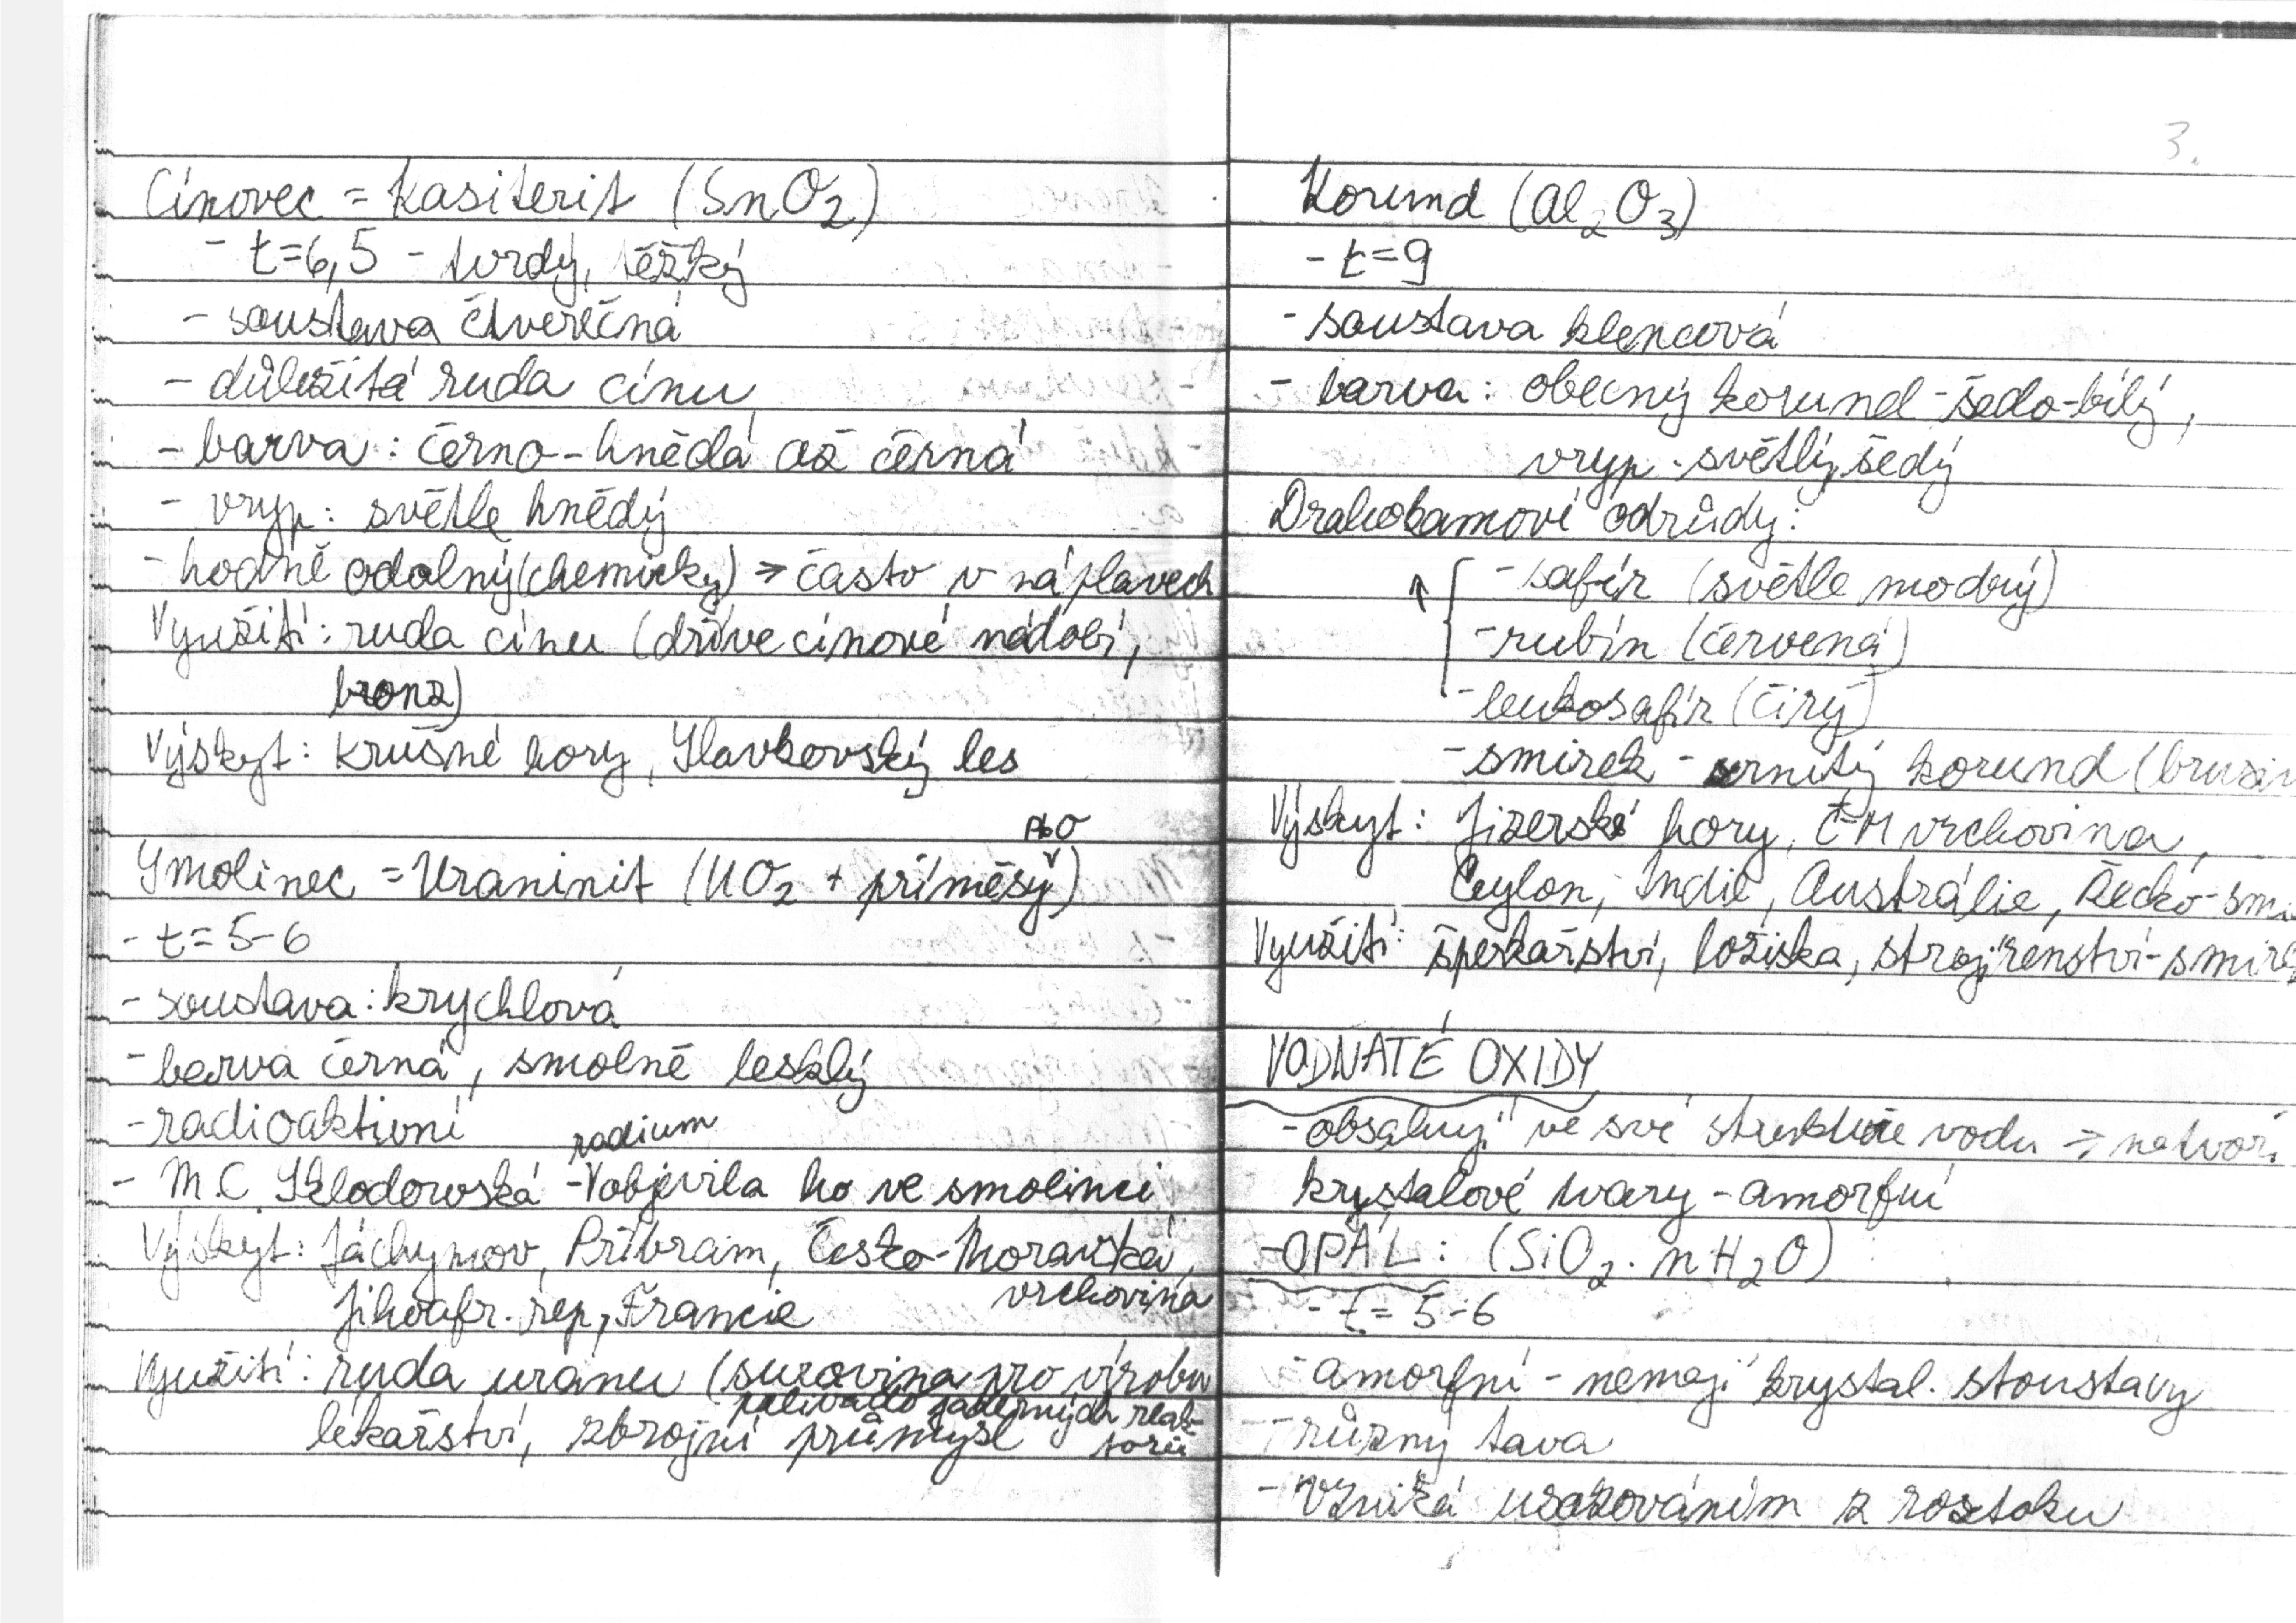 Cínovec = Kasiterit (SnO2)
- t=6,5 - tvrdý, těžký
- soustava čtverečná
- důležitá ruda cínu
- barva : černo-hnědá až černá
- vryp: světle hnědý
- hodně odolný (chemicky) => často v náplavech
Využití : ruda cínu (dříve cínové nádobí,
bronz)
Výskyt : Krušné hory, Slavkovský les
PbO
Smolinec = Uraninit (UO2 + příměsy)
- t=5-6
- soustava : krychlová
- barva černá, smolně lesklý
- radioaktivní
radium
- M.C Sklodowská - objevila ho ve smolinci
Výskyt : Jáchymov, Příbram, Česko-Moravská
vrchovina
Jihoafr. rep, Francie
Využití : ruda uranu (surovina pro výrobu
paliva do jaderných reak-
torů
lékařství, zbrojní průmysl
3.
Korund (Al2O3)
- t=9
- soustava klencová
- barva : obecný korund - šedo-bílý,
vryp - světlý, šedý
Drahokamové odrůdy :
- safír (světle modrý)
- rubín (červená)
- leukosafír (čirý)
- smirek - zrnitý korund (brusiv
Výskyt : Jizerské hory, Č-M vrchovina,
Ceylon, Indie, Austrálie, Řecko - smi
Využití : šperkařství, ložiska, strojírenství - smirek
VODNATÉ OXIDY
- obsahují ve své struktuře vodu => netvoří
krystalové tvary - amorfní
- OPÁL : (SiO2 . nH2O)
- t= 5-6
- amorfní - nemají krystal. stoustavy
- různý tava
- Vzniká usazováním z roztoku